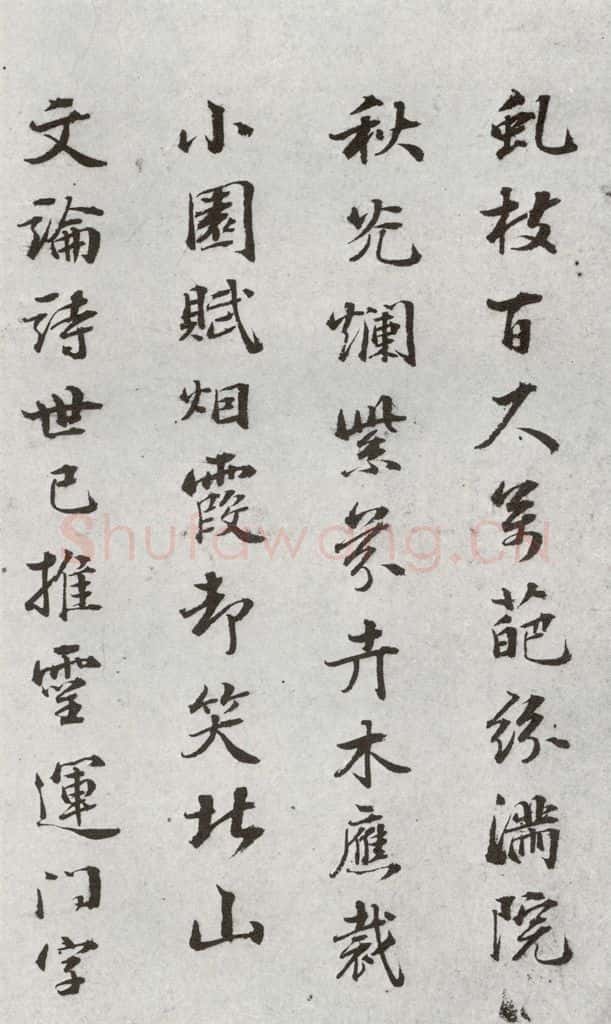 虬枝百尺萬葩紛滿院
秋光爛紫芬卉木應裁
小園賦烟霞却笑北山
文論詩世已推靈運問字
Shufawang.cn